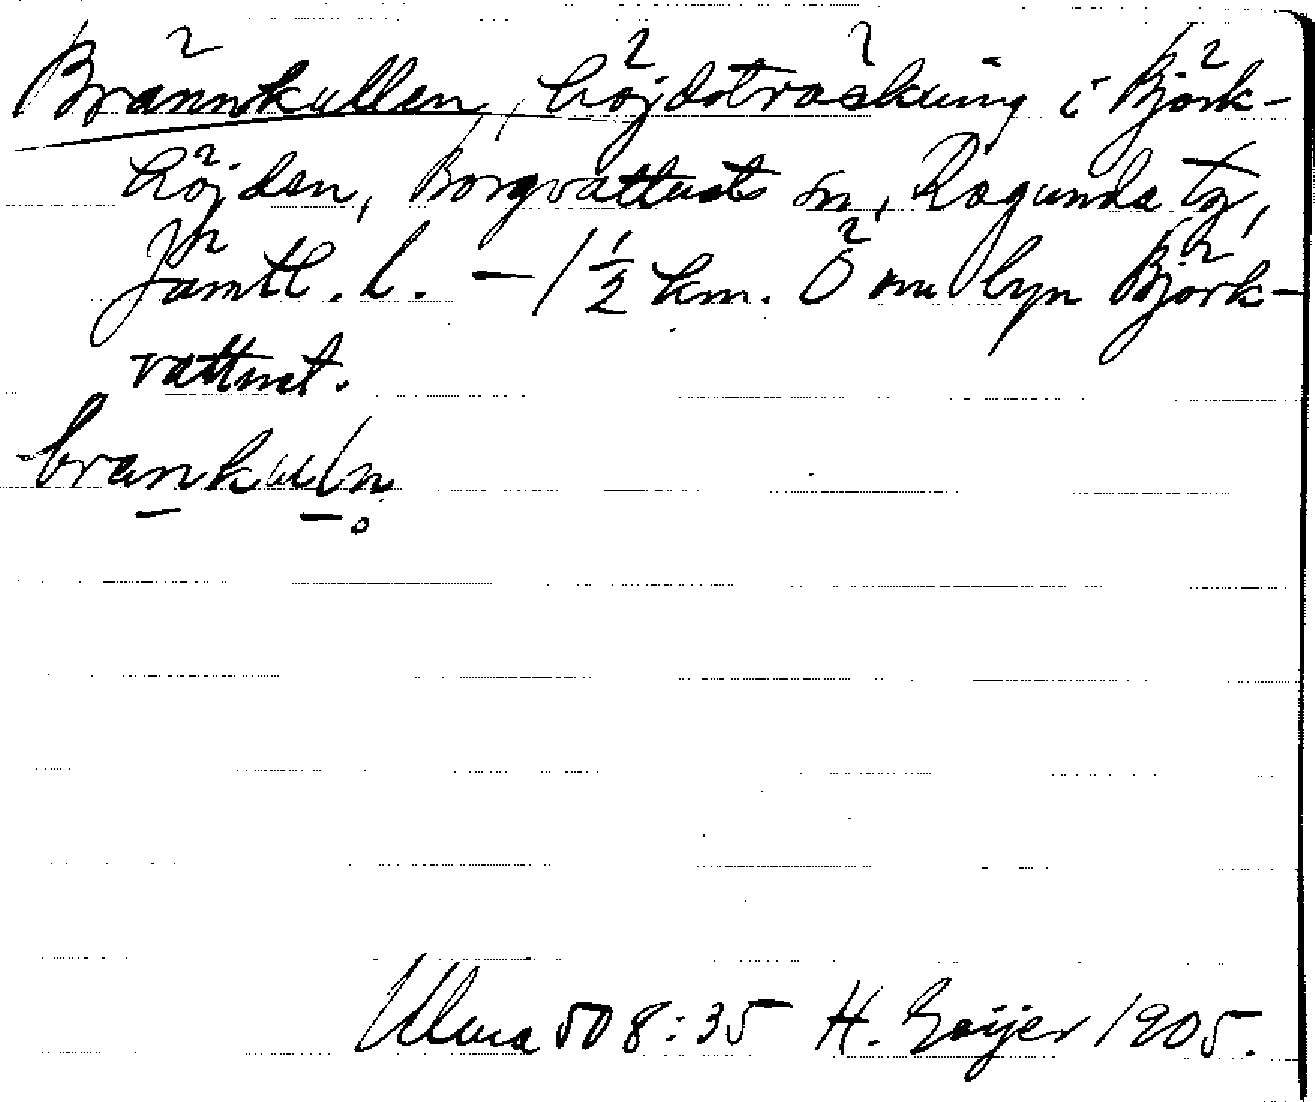 Brännkullen, höjdsträckning i Björk-
höjden, Borgvattnets sn, Ragunda tg,
Jämtl. l. – 1 1/2 km. Ö om byn Björk-
vattnet.
brankuln̥
Ulma 508:35 H. Geijer 1905.